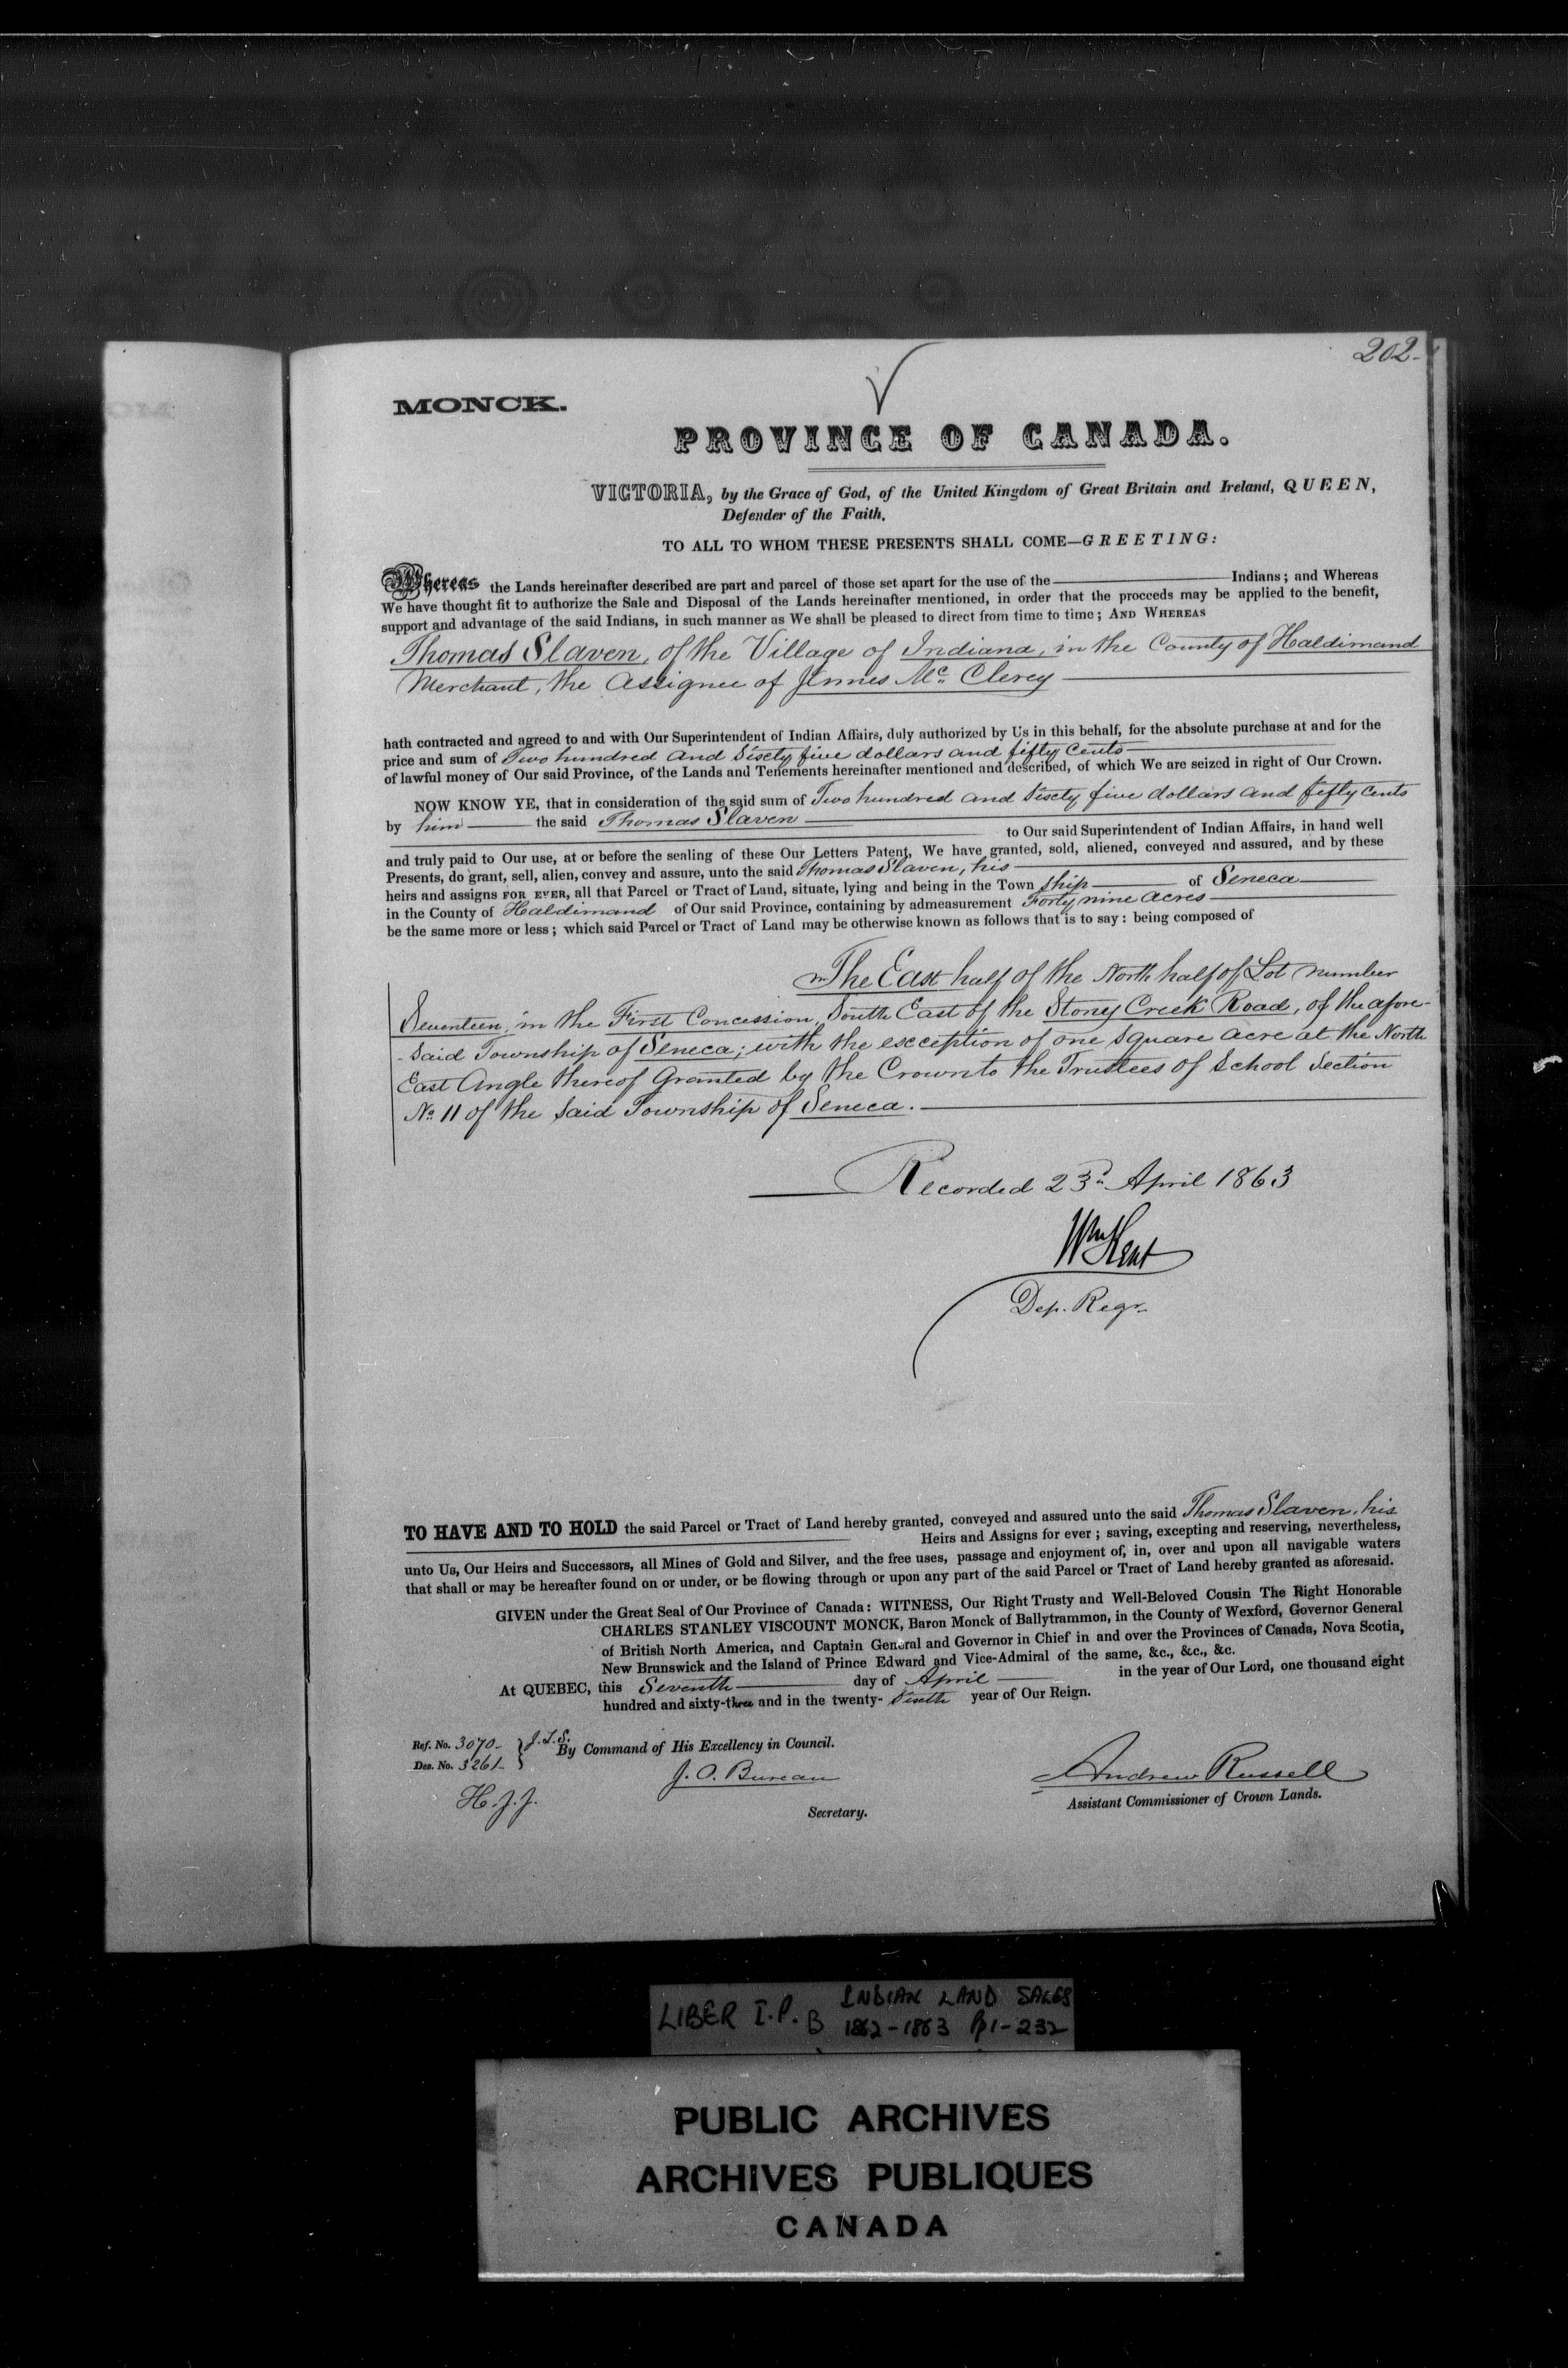 202.
MONCK.
PROVINCE OF CANADA.
VICTORIA, by the Grace of God, of the United Kingdom of Great Britain and Ireland, QUEEN,
Defender of the Faith,
TO ALL TO WHOM THESE PRESENTS SHALL COME—GREETING:
Whereas the Lands hereinafter described are part and parcel of those set apart for the use of the Indians; and Whereas
We have thought fit to authorize the Sale and Disposal of the Lands hereinafter mentioned, in order that the proceeds may be applied to the benefit,
support and advantage of the said Indians, in such manner as We shall be pleased to direct from time to time; AND WHEREAS
Thomas Slaven, of the Village of Indiana, in the County of Haldimand
Merchant, the Assignee of Jennes Mc Clerey
hath contracted and agreed to and with Our Superintendent of Indian Affairs, duly authorized by Us in this behalf, for the absolute purchase at and for the
price and sum of Two hundred and Sixty five dollars and fifty Cents
of lawful money of Our said Province, of the Lands and Tenements hereinafter mentioned and described, of which We are seized in right of Our Crown.
NOW KNOW YE, that in consideration of the said sum of Two hundred and Sixty five dollars and fifty Cents
by him the said Thomas Slaven
to Our said Superintendent of Indian Affairs, in hand well
and truly paid to Our use, at or before the sealing of these Our Letters Patent, We have granted, sold, aliened, conveyed and assured, and by these
Presents, do grant, sell, alien, convey and assure, unto the said Thomas Slaven, his
heirs and assigns FOR EVER, all that Parcel or Tract of Land, situate, lying and being in the Town ship of Seneca
in the County of Haldimand of Our said Province, containing by admeasurement Forty nine Acres
be the same more or less; which said Parcel or Tract of Land may be otherwise known as follows that is to say: being composed of
The East half of the North half of Lot number
Seventeen, in the First Concession, South East of the Stoney Creek Road, of the afore-
-Said Township of Seneca; with the exception of one Square Acre at the North
East Angle thereof Granted by the Crown to the Trustees of School Section
No 11 of the said Township of Seneca.
Recorded 23d April 1863
Wm Kent
Dep. Regr.
TO HAVE AND TO HOLD the said Parcel or Tract of Land hereby granted, conveyed and assured unto the said Thomas Slaven, his
Heirs and Assigns for ever; saving, excepting and reserving, nevertheless,
unto Us, Our Heirs and Successors, all Mines of Gold and Silver, and the free uses, passage and enjoyment of, in, over and upon all navigable waters
that shall or may be hereafter found on or under, or be flowing through or upon any part of the said Parcel or Tract of Land hereby granted as aforesaid.
GIVEN under the Great Seal of Our Province of Canada: WITNESS, Our Right Trusty and Well-Beloved Cousin The Right Honorable
CHARLES STANLEY VISCOUNT MONCK, Baron Monck of Ballytrammon, in the County of Wexford, Governor General
of British North America, and Captain General and Governor in Chief in and over the Provinces of Canada, Nova Scotia,
New Brunswick and the Island of Prince Edward and Vice-Admiral of the same, &c., &c., &c.
At QUEBEC, this Seventh day of April in the year of Our Lord, one thousand eight
hundred and sixty-three and in the twenty- Sixth year of Our Reign.
Ref. No. 3070 } J.L.S.
Des. No. 3261 } By Command of His Excellency in Council.
H.J.J.
J. O. Bureau
Secretary.
Andrew Russell
Assistant Commissioner of Crown Lands.
LIBER I.P. B INDIAN LAND SALES
1862-1863 Pp 1-232
PUBLIC ARCHIVES
ARCHIVES PUBLIQUES
CANADA